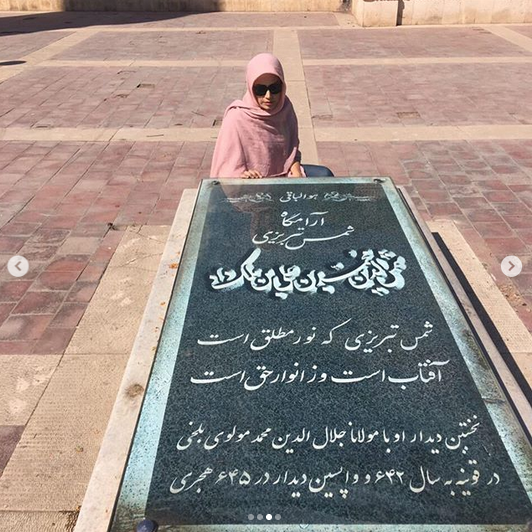 هوالباقی
آرامگاه
شمس تبریزی
شمس الدین محمد بن علی بن ملک داد
شمس تبریزی که نور مطلق است
آفتاب است و ز انوار حق است
نخستین دیدار او با مولانا جلال الدین محمد مولوی بلخی
در قونیه به سال ۶۴۲ و واپسین دیدار در ۶۴۵ هجری